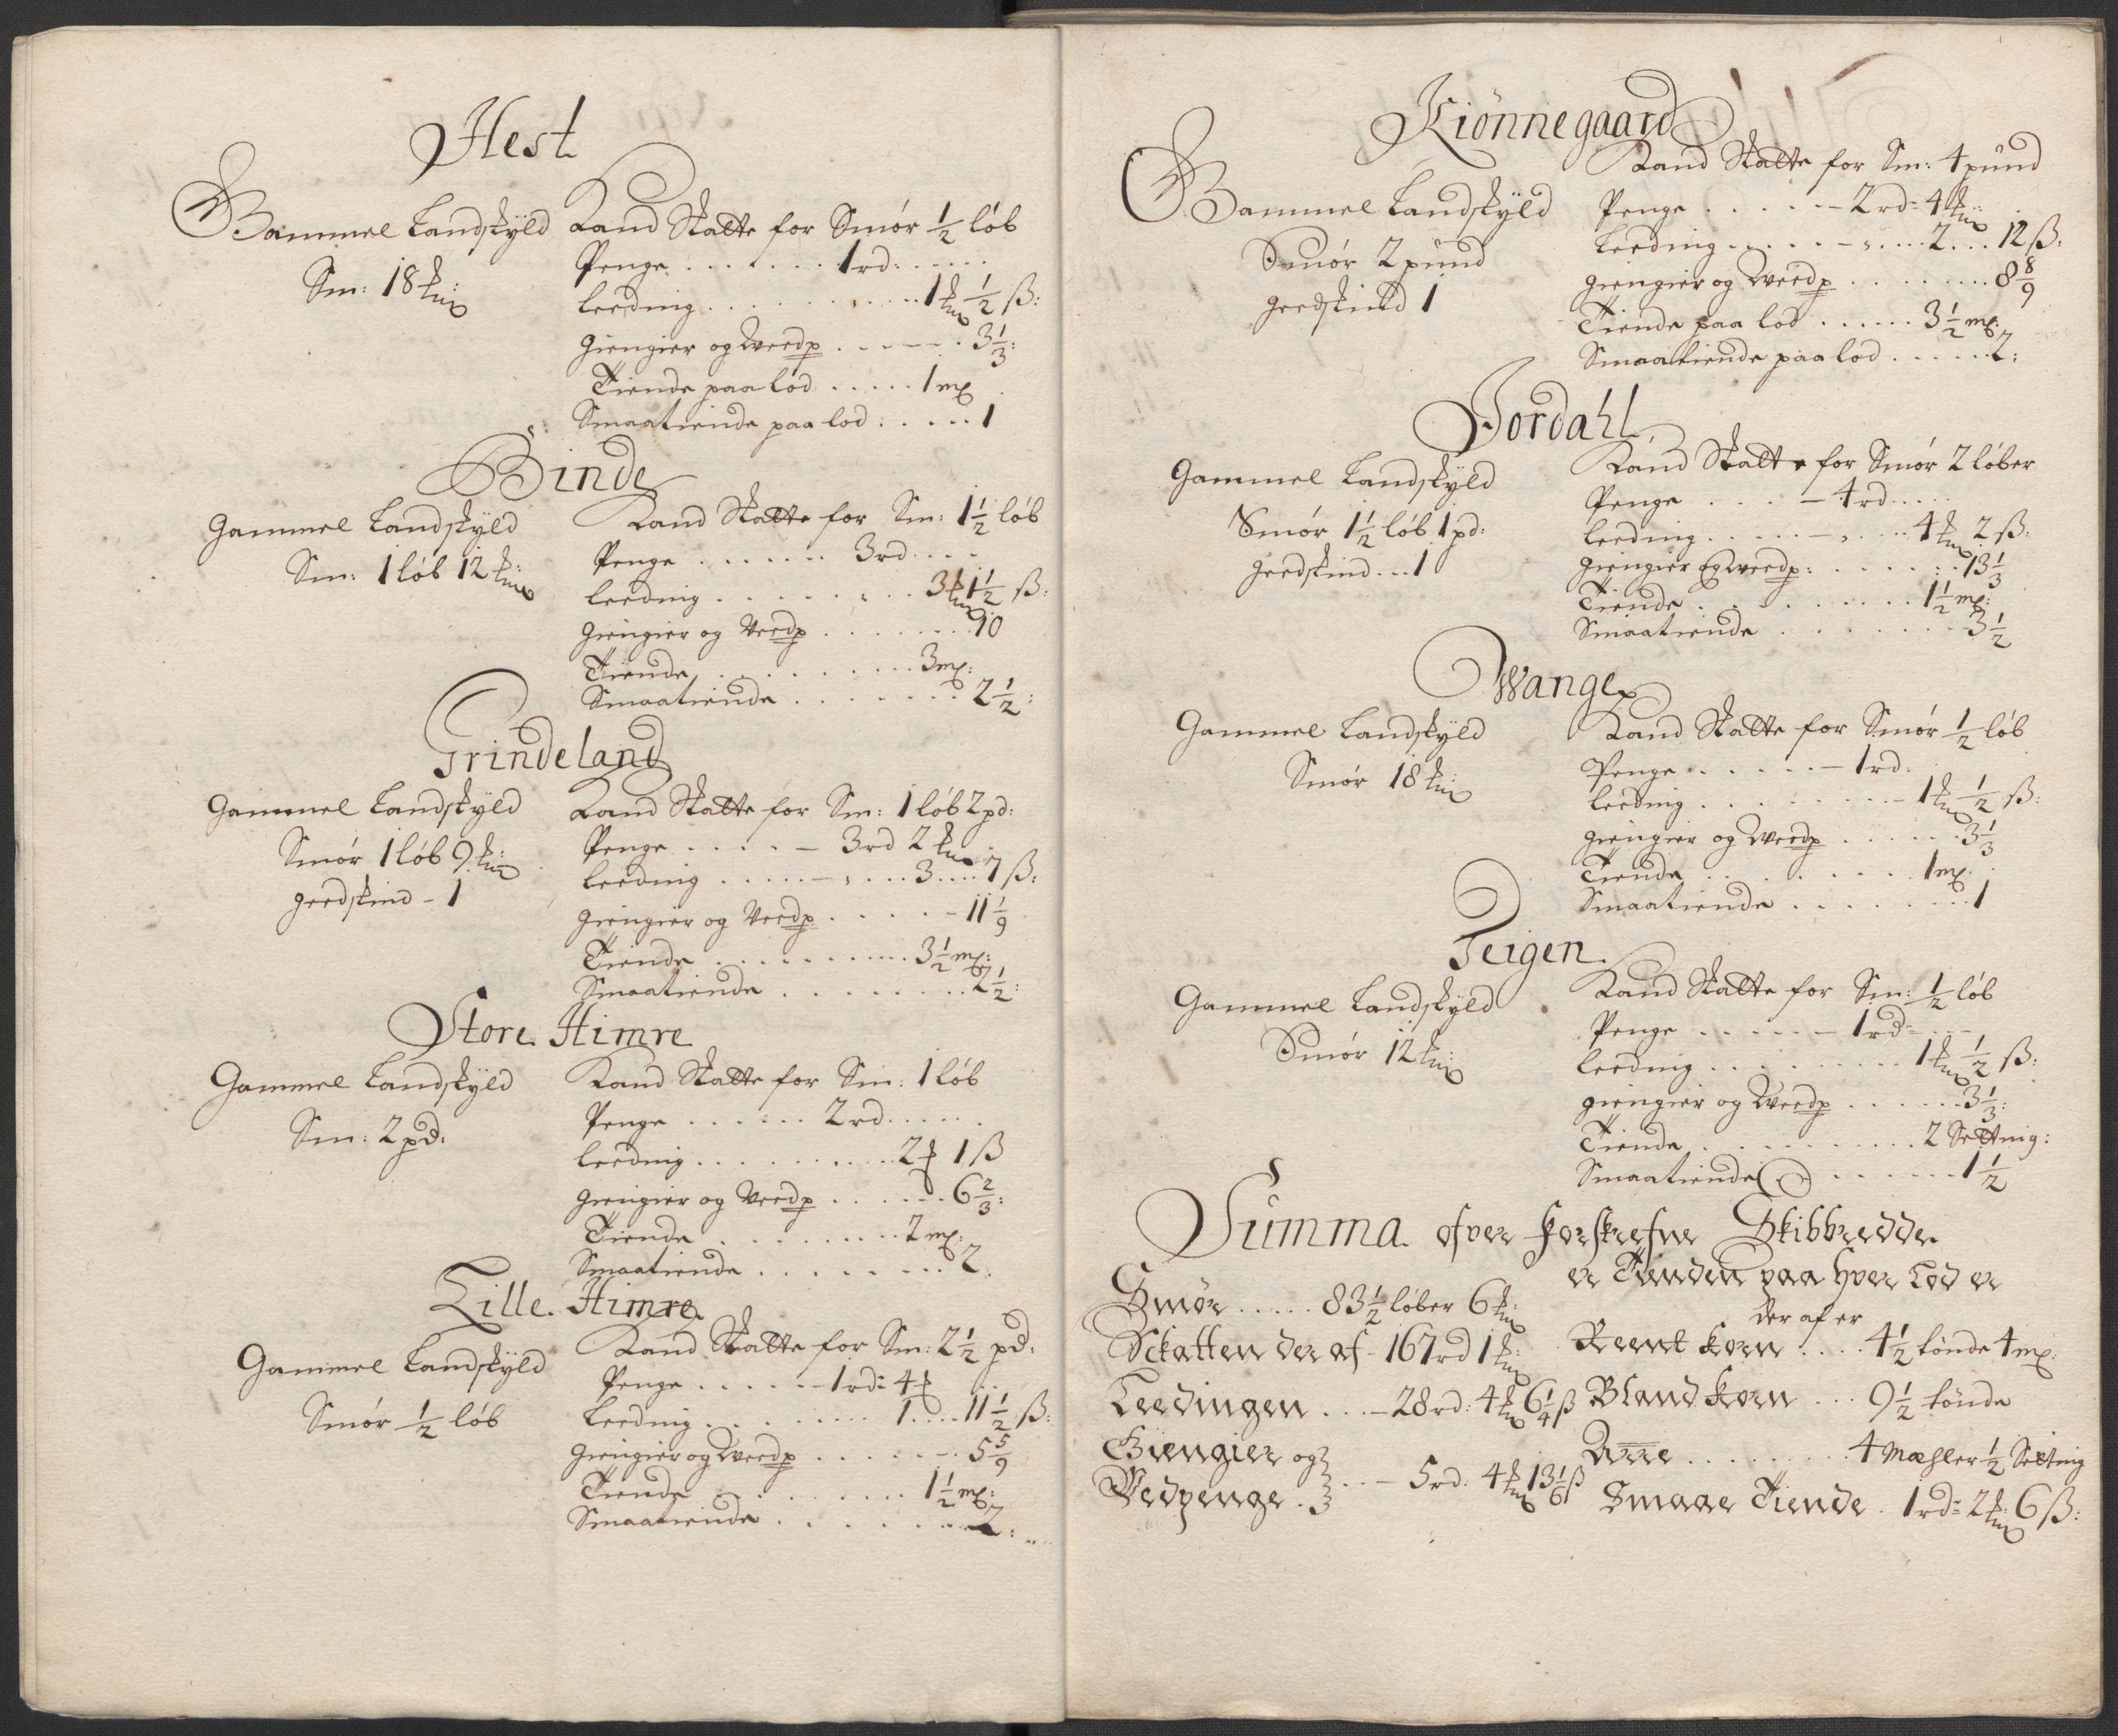 Hest
Gammel Landskÿld
Sm: 18 m𝔨:
Kand Skatte for Smør ½ løb
Penge . . . . . . 1 rd: . . . .
Leeding . . . . . . . . 1 m𝔨 ½ ß:
giengier og Weedp . . . . . 3⅓:
Tiende paa lod . . . . . 1 ml
Smaatiende paa lod: . . . . 1
Binde
Gammel Landskÿld
Sm: 1 løb 12 m𝔨:
Kand Skatte for Sm: 1½ løb
Penge . . . . . . 3 rd . . . .
Leeding . . . . . . . 3 m𝔨 1½ ß:
giengier og Veedp . . . . . . 10
Tiende . . . . . . . 3 ml:
Smaatiende . . . . . . . 2½:
Grindeland
Gammel Landskÿld
Smør 1 løb 9 m𝔨:
geedskind - 1
Kand Skatte for Sm: 1 løb 2 pd:
Penge . . . . - 3 rd 2 m𝔨
Leeding . . . . - . . . 3 . . . 7 ß:
giengier og Veedp . . . . . - 11 1/9
Tiende . . . . . . . . 3½ ml:
Smaatiende . . . . . . . . 2½:
Store Himre
Gammel Landskÿld
Sm: 2 pd:
Kand Skatte for Sm: 1 løb
Penge . . . . . . 2 rd . . . .
Leeding . . . . . . . . 2 𝔨 1 ß
giengier og Veedp . . . . . . 6⅔:
Tiende . . . . . . . . 2 ml:
Smaatiende . . . . . . . . 2.
Lille Himre
Gammel Landskÿld
Smør ½ løb
Kand Skatte for Sm: 2½ pd:
Penge . . . . . - 1 rd: 4 𝔨
Leeding . . . . . . . . 1 . . . 11½ ß:
giengier og Weedp . . . . . . 5 5/9
Tiende . . . . . . . . 1½ ml:
Smaatiende . . . . . . . . 2:
Kiønnegaard
Gammel Landskÿld
Smør 2 pund
geedskind 1
Kand Skatte for Sm: 4 pund
Penge . . . . . - 2 rd: 4 m𝔨:
Leeding . . . . - . . . . 2 . . . 12 ß:
giengier og Weedp . . . . . . . 8 8/9
Tiende paa lod . . . . . . 3½ ml:
Smaatiende paa lod . . . . . . 2:
Jordahl
Gammel Landskÿld
Smør 1½ løb 1 pd:
geedskind . . . 1
Kand Skatte for Smør 2 løber
Penge . . . . - 4 rd . . . .
Leeding . . . . . - . . . . 4 m𝔨 2 ß:
giengier og weedp: . . . . . . 13⅓
Tiende . . . . . . . . 1½ ml:
Smaatiende . . . . . . . 3½
Wange
Gammel Landskÿld
Smør 18 m𝔨
Kand Skatte for Smør ½ løb
Penge . . . . . . - 1 rd:
Leeding . . . . . . . . - 1 m𝔨 ½ ß:
giengier og Weedp . . . . . . 3⅓
Tiende . . . . . . . . . 1 ml:
Smaatiende . . . . . . . . 1
Teigen
Gammel Landskÿld
Smør 12 m𝔨:
Kand Skatte for Sm: ½ løb
Penge . . . . . - 1 rd: . . .
Leeding . . . . . . . . . 1 m𝔨 ½ ß:
giengier og Weedp . . . . . . 3⅓:
Tiende . . . . . . . . . 2 Setting:
Smaatiende . . . . . . 1½
Summa ofver forskrefne Skibbredde
Smør . . . . . 83½ løber 6 m𝔨:
Sckatten der af - 167 rd 1 m𝔨:
Leedingen . . . - 28 rd: 4 m𝔨 6¼ ß
Giengier og
Vedpenge . . . . - 5 rd: 4 m𝔨 13⅙ ß
er Tienden paa hver Lod er
der af er
Reent korn . . . . 4½ tønde 4 ml:
Bland korn . . . 9½ tønde
. . . . . . . 4 Mæhler ½ Setting
Smaae Tiende . 1 rd: 2 m𝔨: 6 ß: